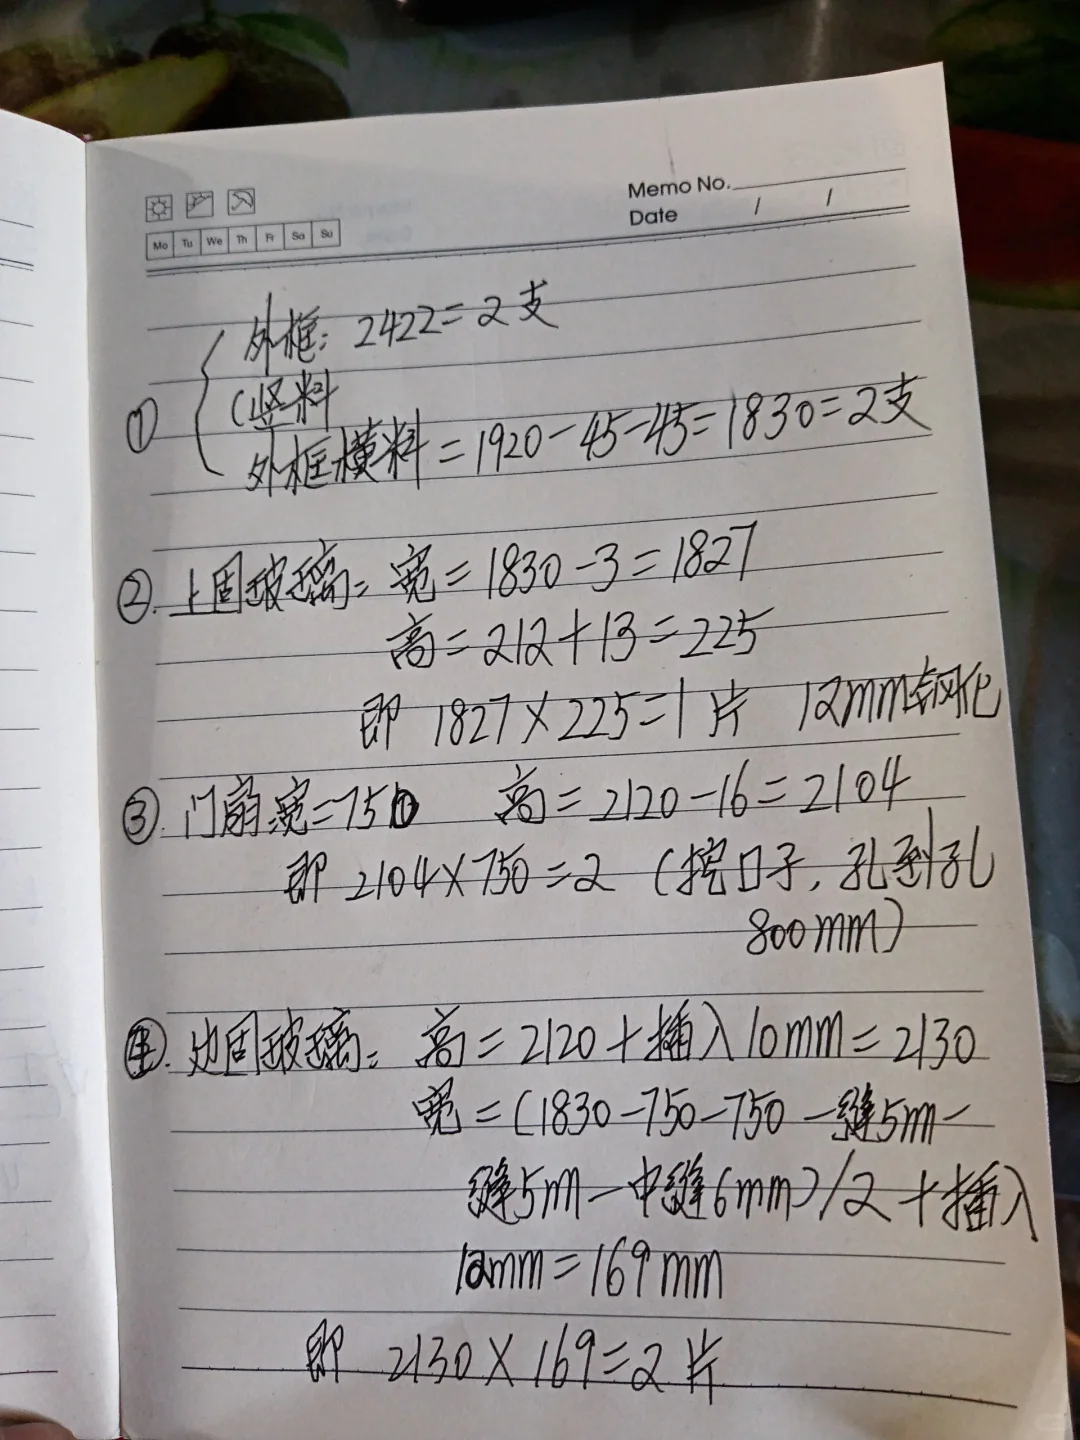 Memo No.
Date / /
Mo Tu We Th Fr Sa Su
① 外框: 2422=2支
(竖料
外框横料=1920-45-45=1830=2支
②. 上固玻璃= 宽=1830-3=1827
高=212+13=225
即 1827×225=1片 12mm钢化
③. 门扇宽=750 高=2120-16=2104
即 2104×750=2 (挖日子, 孔到孔
800mm)
④. 边固玻璃= 高=2120+插入10mm=2130
宽=(1830-750-750-缝5m-
缝5m-中缝6mm)/2+插入
12mm=169mm
即 2130×169=2片